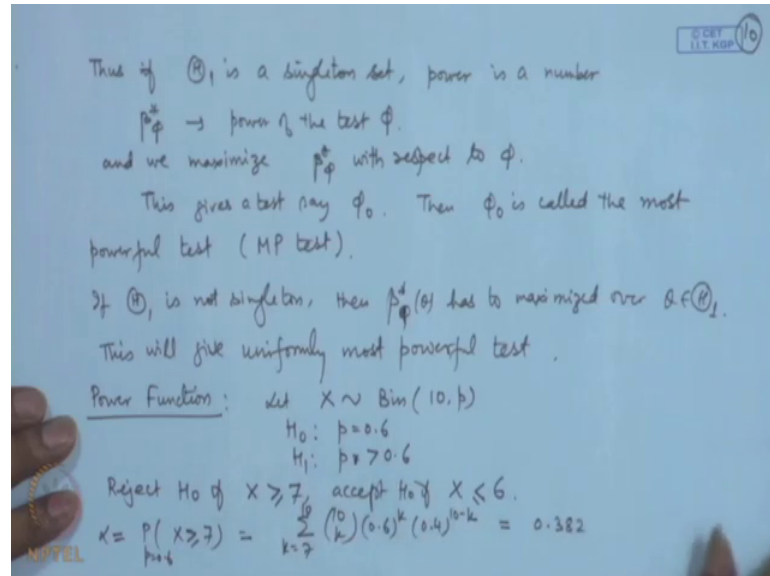 © CET
I.I.T. KGP
10
Thus if Ⓗ₁ is a singleton set, power is a number
β*_φ → power of the test φ.
and we maximize β*_φ with respect to φ.
This gives a test say φ₀. Then φ₀ is called the most
powerful test (MP test).
If Ⓗ₁ is not singleton, then β*_φ(θ) has to maximized over θ ∈ Ⓗ₁.
This will give uniformly most powerful test.
Power Function: Let X ~ Bin(10, p)
H₀: p = 0.6
H₁: p > 0.6
Reject H₀ if X ≥ 7, accept H₀ if X ≤ 6.
α = P_{p=0.6}(X ≥ 7) = ∑_{k=7}^{10} (10 k) (0.6)^k (0.4)^{10-k} = 0.382
NPTEL